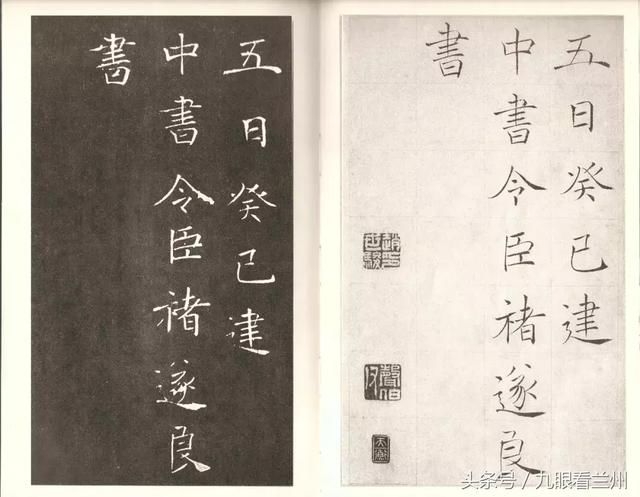 五日癸巳建
中書令臣褚遂良
書
五日癸巳建
中書令臣褚遂良
書
头条号 / 九眼看兰州